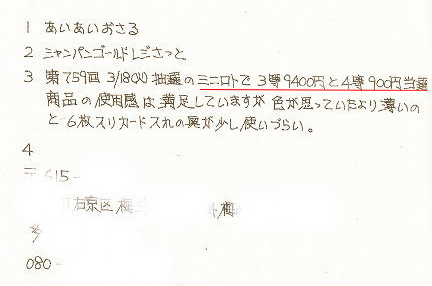 1 あいあいおさる
2 シャンパンゴールドレジさっと
3 第759回 3/18(火) 抽選の ミニロトで 3等 9400円と 4等 900円当選
商品の 使用感は 満足していますが 色が 思っていたより 薄いの
と 6枚スリカードスれの 翼が少し 使いづらい。
4
〒615-
右京区 梅
080-